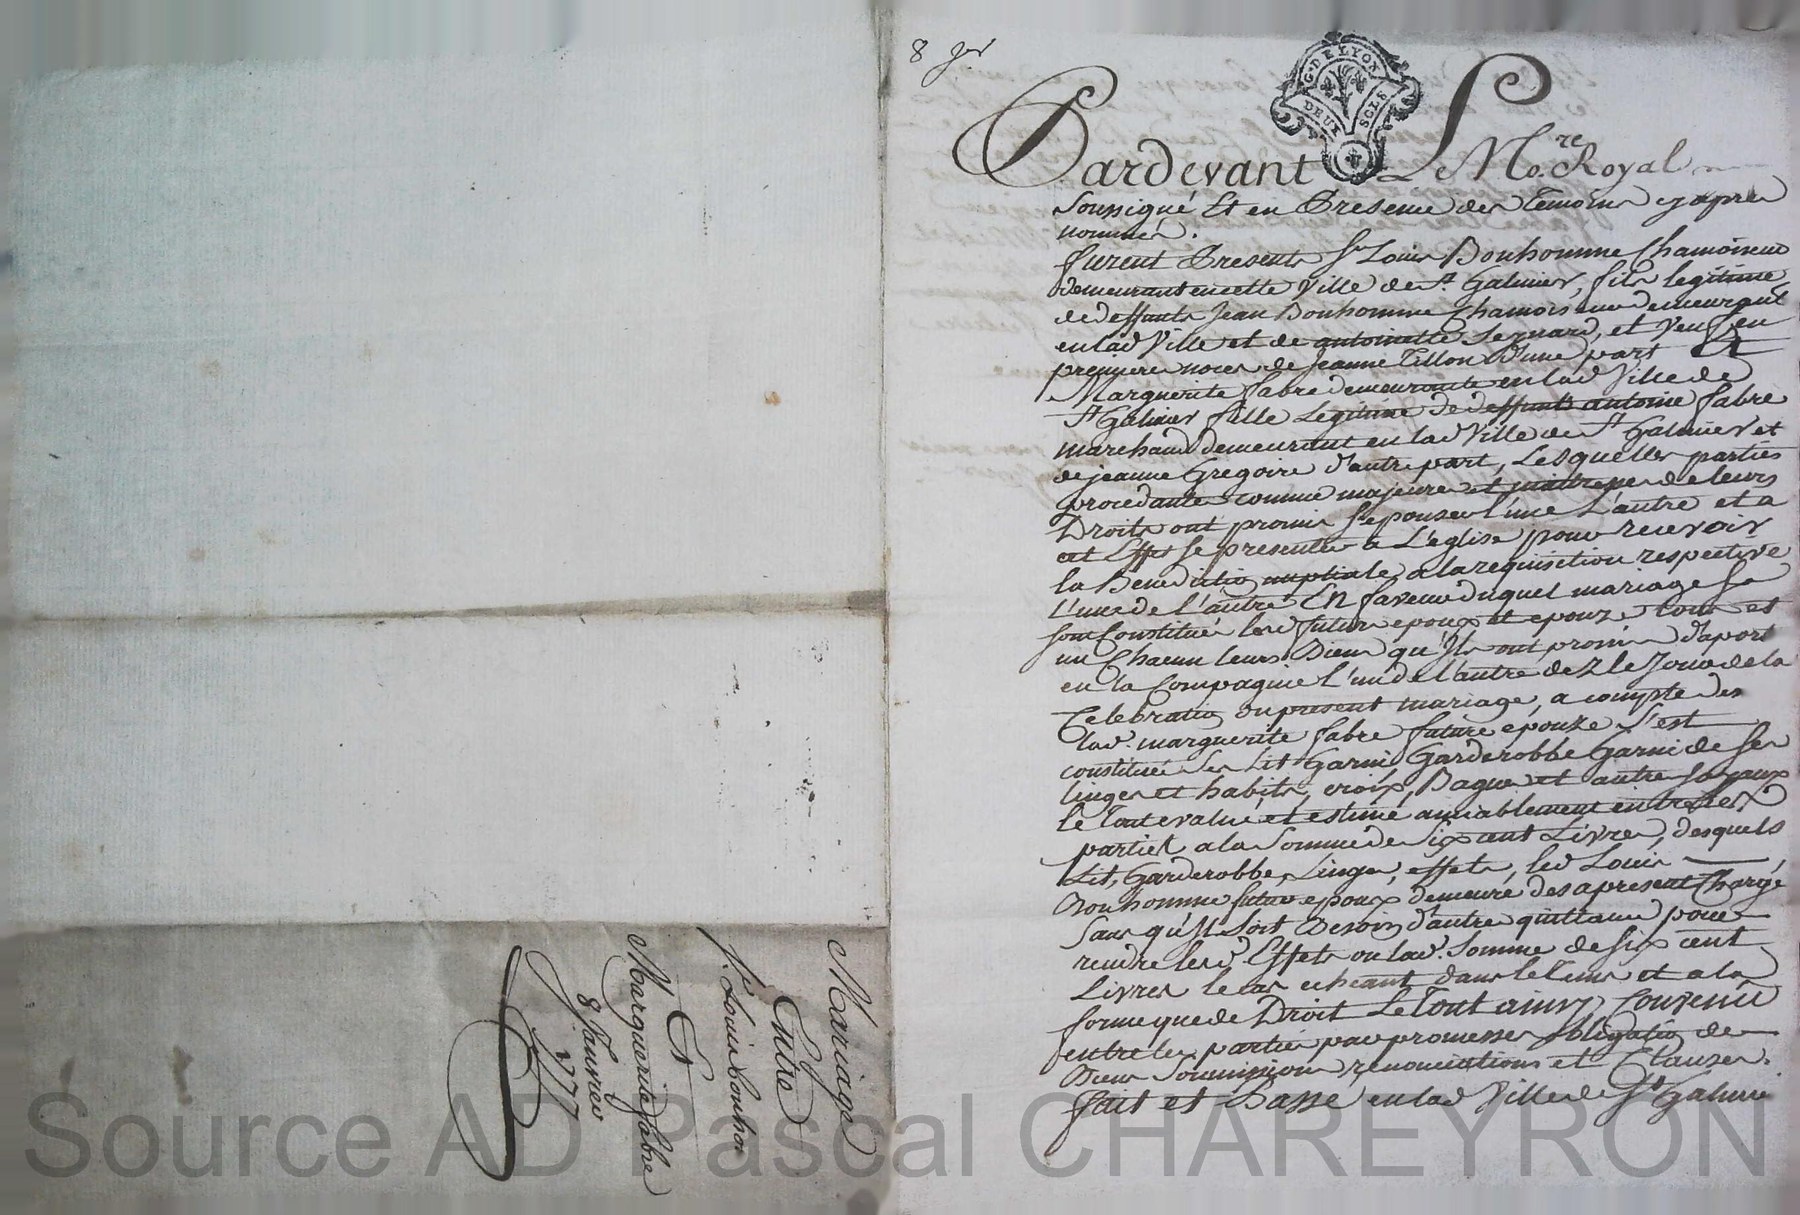 8 Jer
G. DE LYON
DEUX SOLS
Pardevant Le No.re Royal
Soussigné Et en Presence des Temoins cy apres
nommés.
furent Presents Sr Louis Bonhomme Chamoiseur
demeurant en cette Ville de St Galmier, fils legitime
de deffunts Jean Bonhomme Chamoiseur demeurant
en lad Ville et de antoinette Seynard, et Veuf en
premiere noces de Jeanne Tillon d'une part Et
Marguerite fabre demeurante en lad Ville de
St Galmier fille Legitime de deffunts antoine fabre
marchand demeurant en lad Ville de St Galmier et
de jeanne Gregoire d'autre part, Lesquelles parties
procedantes comme majeures et maitresses de leurs
Droits ont promis s'epouser l'une L'autre et a
cet Effet se presenter a L'eglise pour recevoir
la Benediction nuptiale a la requisition respective
L'une de l'autre En faveur duquel mariage se
sont Constitués lesd futurs epoux et epouze tous et
un Chacun leurs Biens qu'Ils ont promis d'aport
en la Compagnie l'un de l'autre dez le Jour de la
Celebration du present mariage, a compte des
lad. marguerite fabre future epouze s'est
constituée Ses Lit Garni Garderobbe Garni de ses
linges et habits, croix, Bague et autres Joyaux
le Tout evalué et estimé amiablement entre les
parties a la Somme de Six cent Livres, desquels
Lit, Garderobbe, Linges, effets, led Louis
Bonhomme futur epoux demeure des a present Chargé
Sans qu'Il Soit Besoin d'autre quittance pour
rendre lesd Effets ou lad. Somme de six cent
Livres le cas echeant dans le Tems et a la
forme que de Droit Le Tout ainsy Convenu
entre les parties par promesses obligation de
Biens Soumissions renonciations et Clauses.
fait et Passé en lad Ville de St Galmier
Mariage
Entre
Sr. Louis bonhome
Et
Marguerite fabre
8 Janvier
1777
Source AD Pascal CHAREYRON